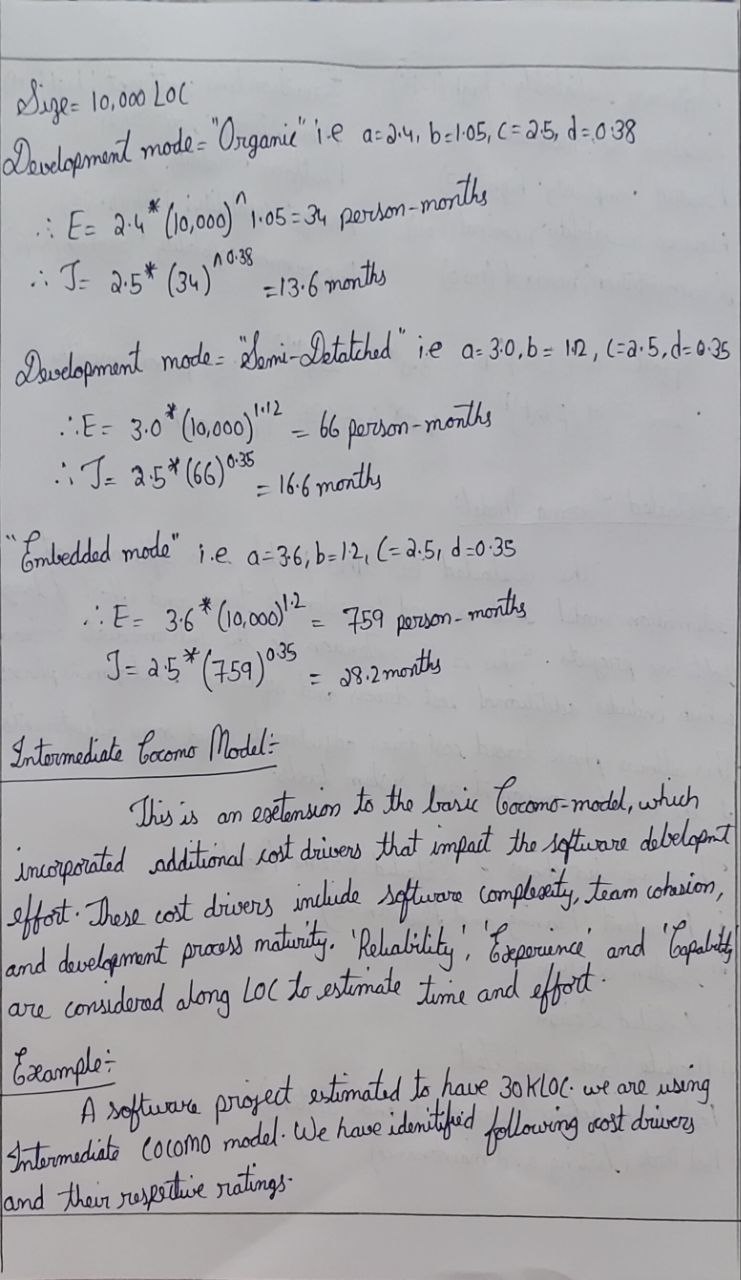 Size= 10,000 LOC
Development mode= "Organic" i.e a=2.4, b=1.05, C=2.5, d=0.38
∴ E= 2.4*(10,000)^1.05=34 person-months
∴ T= 2.5* (34)^0.38 =13.6 months
Development mode= "Semi-Detatched" i.e a=3.0, b= 1.12, C=2.5, d=0.35
∴E= 3.0*(10,000)^1.12 = 66 person-months
∴ T= 2.5*(66)^0.35 = 16.6 months
"Embedded mode" i.e. a=3.6, b=1.2, C=2.5, d=0.35
∴ E= 3.6*(10,000)^1.2 = 759 person-months
T= 2.5*(759)^0.35 = 28.2 months
Intermediate Cocomo Model:-
This is an extension to the basic Cocomo-model, which
incorporated additional cost drivers that impact the software debelopnt
effort. These cost drivers include software complexity, team cohesion,
and development process maturity. 'Reliability', 'Experience' and 'Capability
are considered along LOC to estimate time and effort.
Example:-
A software project estimated to have 30KLOC. we are using
Intermediate COCOMO model. We have idenitified following cost drivers
and their respective ratings.